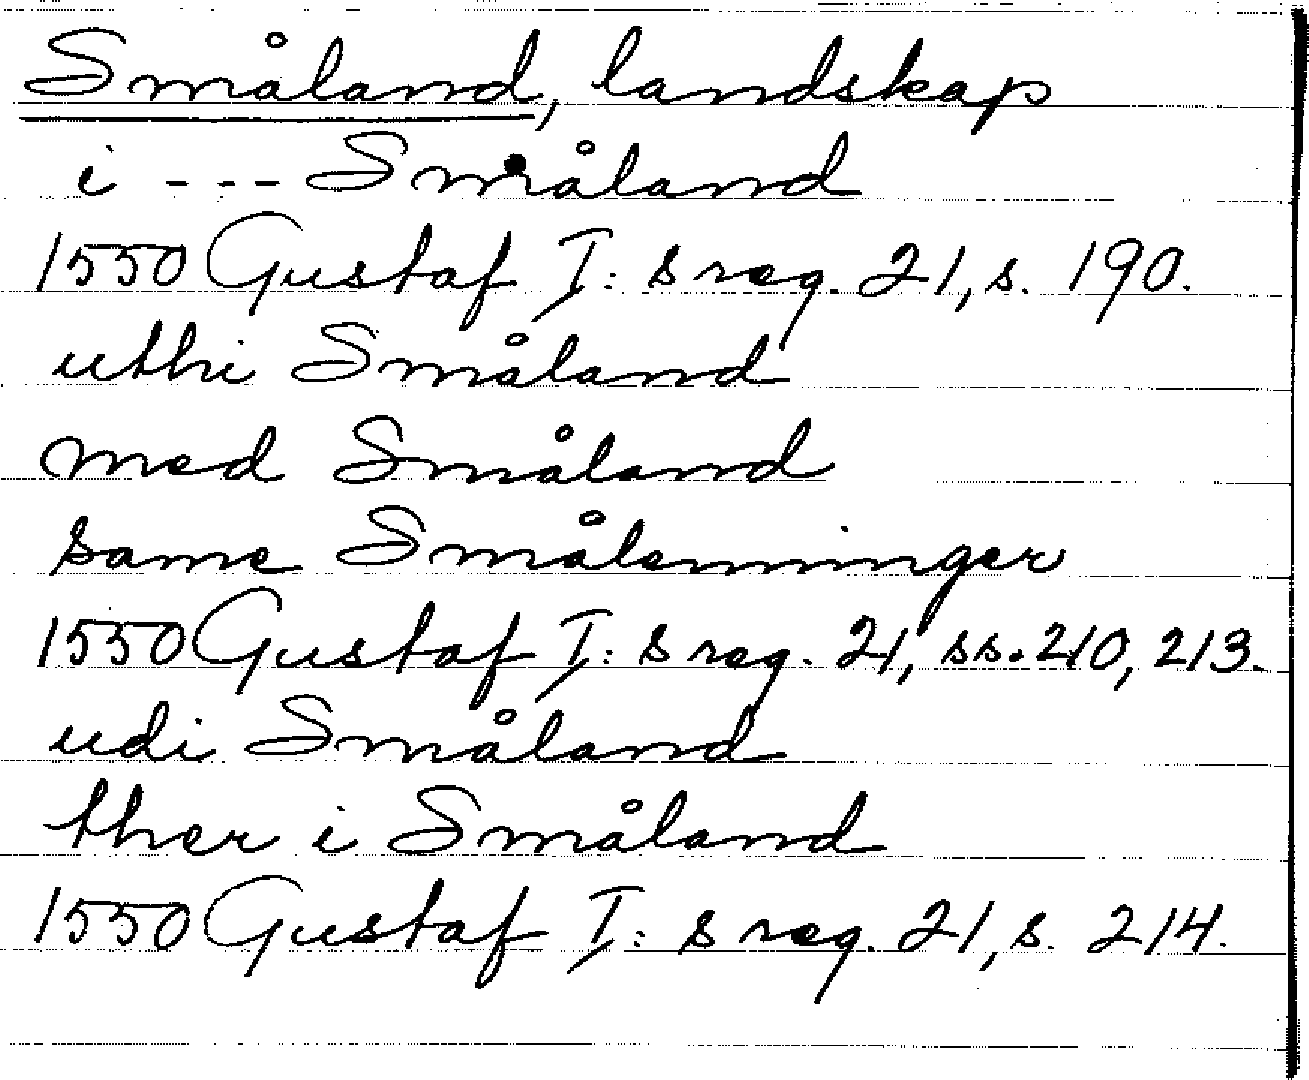 Småland, landskap
i --- Småland
1550 Gustaf I:s reg. 21, s. 190.
uthi Småland
med Småland
same Smålenninger
1550 Gustaf I:s reg. 21, ss. 210, 213.
udi Småland
ther i Småland
1550 Gustaf I:s reg. 21, s. 214.